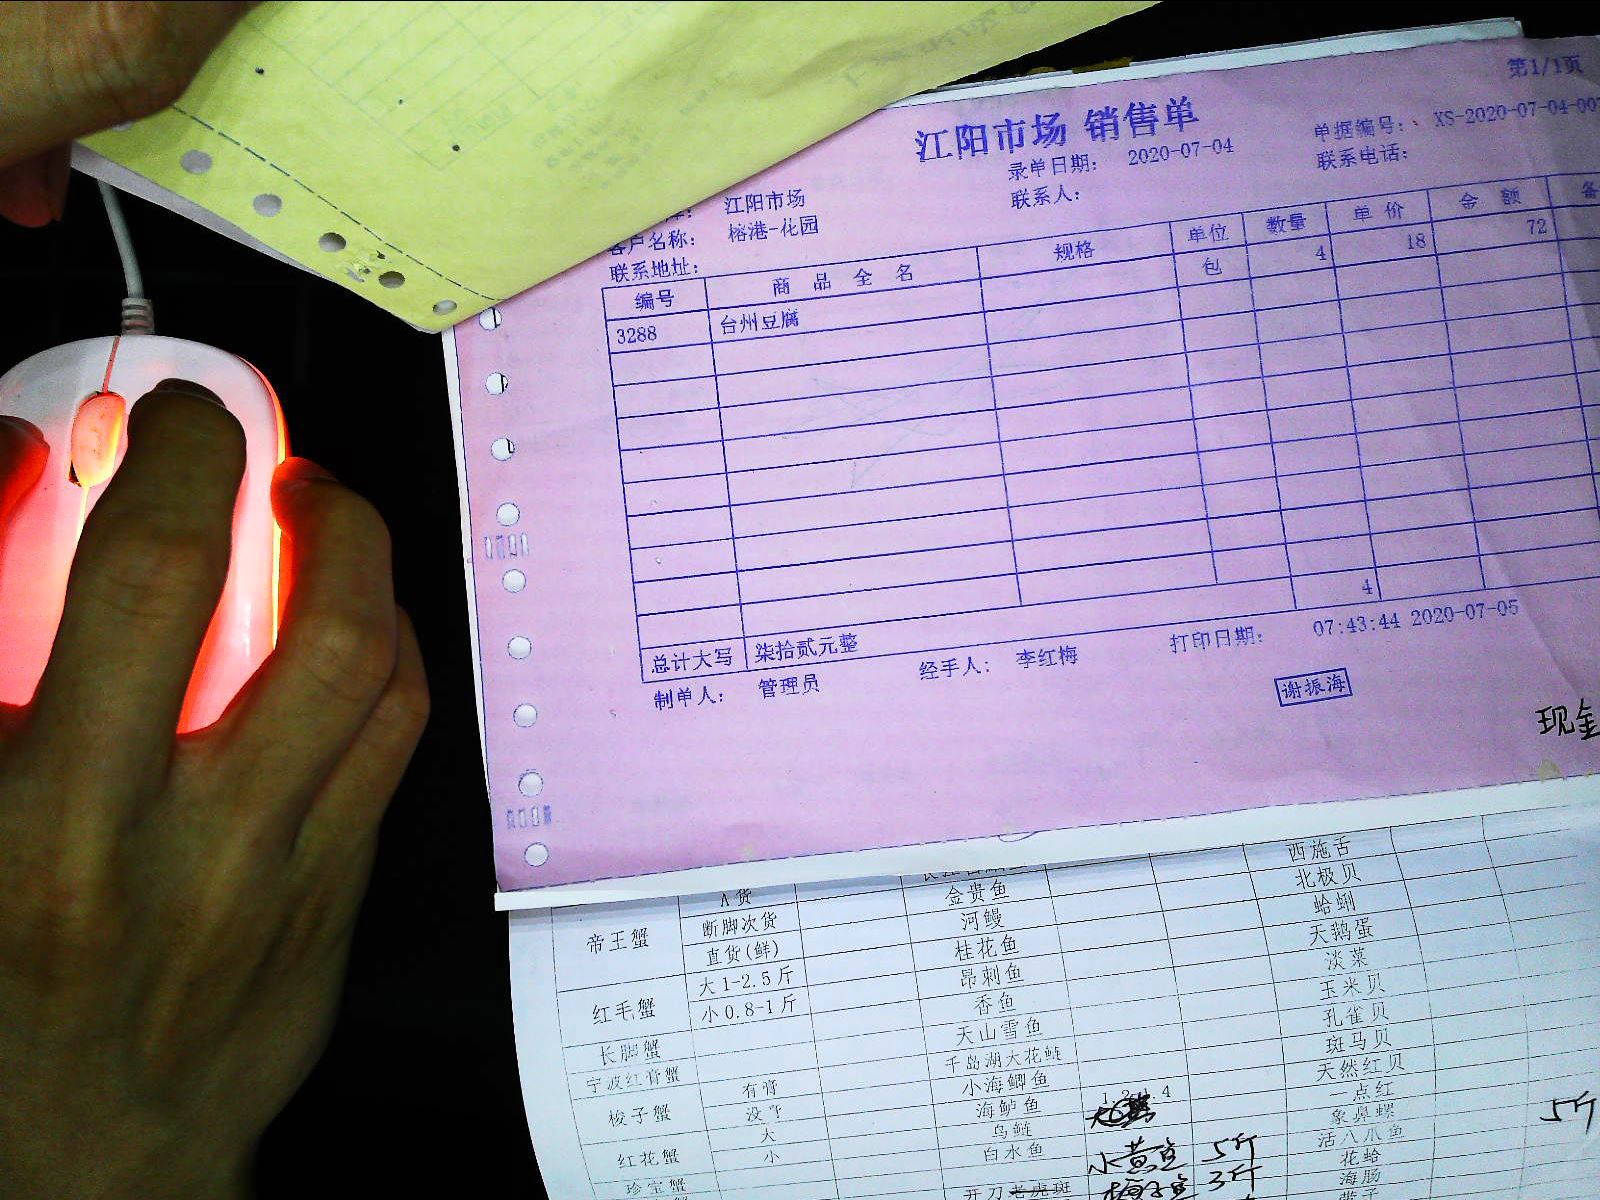 第1/1页
江阳市场 销售单
单据编号: XS-2020-07-04-007
录单日期: 2020-07-04
联系电话:
江阳市场
联系人:
客户名称: 榕港-花园
联系地址:
编号 商品全名 规格 单位 数量 单价 金额
3288 台州豆腐 包 4 18 72
4
总计大写 柒拾贰元整
制单人: 管理员 经手人: 李红梅 打印日期: 07:43:44 2020-07-05
谢振海
现金
西施舌
A货 金贵鱼 北极贝
帝王蟹 断脚次货 河鳗 蛤蜊
直货(鲜) 桂花鱼 天鹅蛋
大1-2.5斤 昂刺鱼 淡菜
红毛蟹 小0.8-1斤 香鱼 玉米贝
天山雪鱼 孔雀贝
长脚蟹 千岛湖大花鲢 斑马贝
宁波红膏蟹 小海鲫鱼 天然红贝
梭子蟹 有膏 海鲈鱼 一点红
没膏 乌鲢 象鼻螺 5斤
大 白水鱼 活八爪鱼
红花蟹 小 小黄鱼 5斤 花蛤
珍宝蟹 开刀老虎斑 3斤 海肠